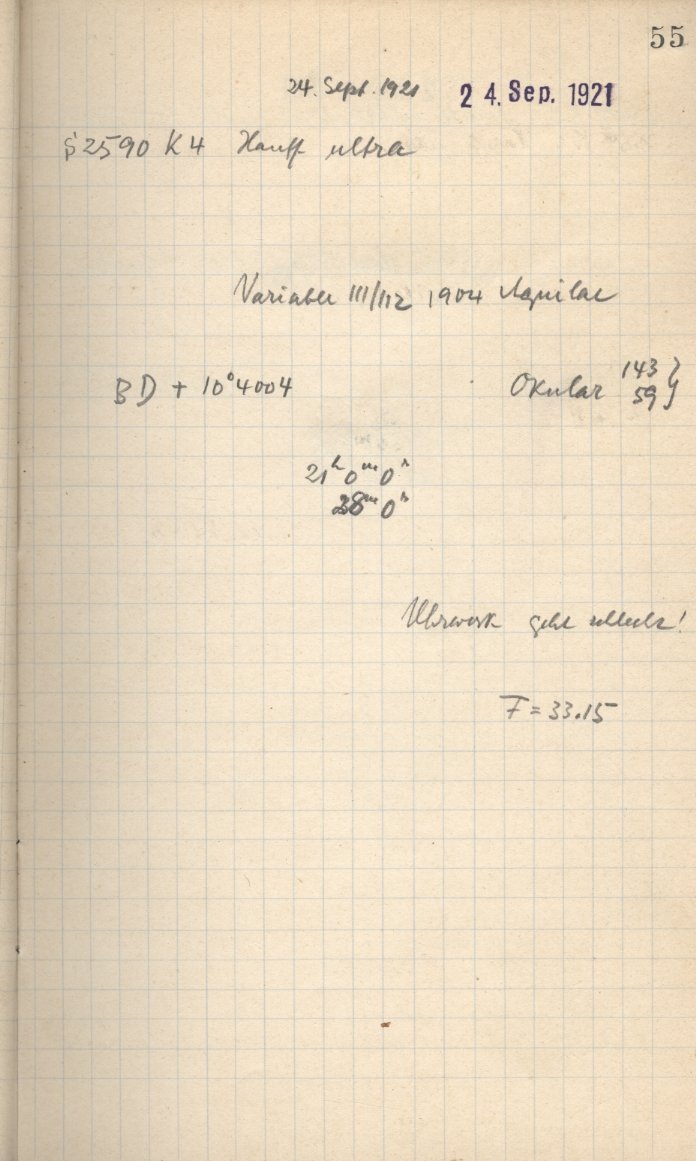 55
24. Sept. 1921 24. Sep. 1921
S 2590 K4 Hauff ultra
Variabler III/112 1904 Aquilae
BD + 10°4004 Okular 143 } 59
21h 0m 0s
38m 0s
Uhrwerk geht schlecht!
F = 33.15